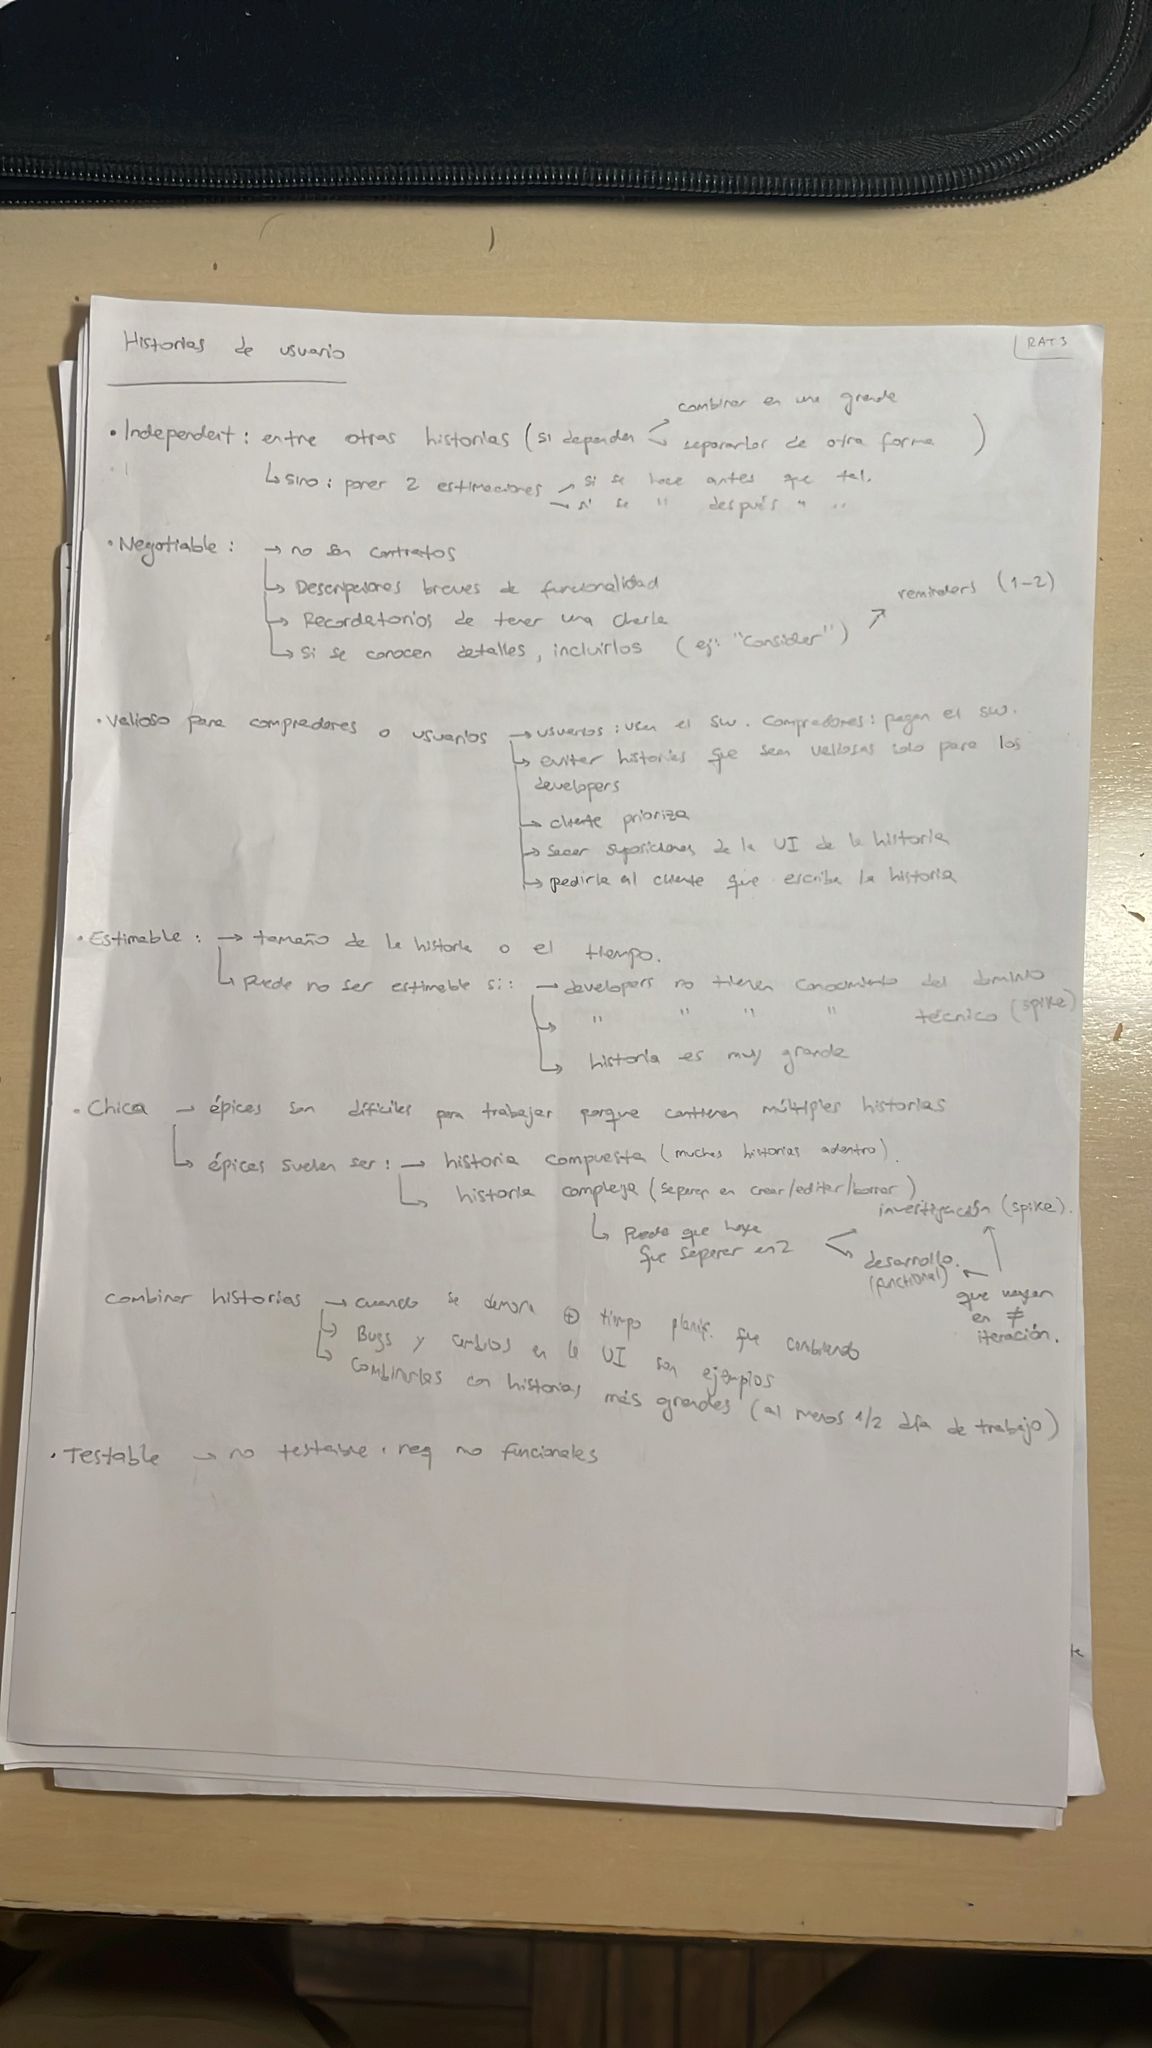 Historias de usuario
RAT3
combinar en una grande
• Independent: entre otras historias (si dependen separarlas de otra forma)
↳ sino: poner 2 estimaciones → si se hace antes que tal.
→ si se " después " "
• Negotiable: → no son contratos
↳ Descripciones breves de funcionalidad
↳ Recordatorios de tener una charla
reminders (1-2)
↳ Si se conocen detalles, incluirlos (ej: "Consider")
• Valioso para compradores o usuarios → usuarios: usan el sw. Compradores: pagan el sw.
↳ evitar historias que sean valiosas solo para los
developers
→ cliente prioriza
→ sacar suposiciones de la UI de la historia
→ pedirle al cliente que escriba la historia
• Estimable: → tamaño de la historia o el tiempo.
↳ puede no ser estimable si: → developers no tienen conocimiento del dominio
→ " " " " técnico (spike)
↳ historia es muy grande
• Chica → épicas son difíciles para trabajar porque contienen múltiples historias
↳ épicas suelen ser: → historia compuesta (muchas historias adentro).
↳ historia compleja (separar en crear/editar/borrar)
investigación (spike).
↳ Puede que haya
que separar en 2
desarrollo.
(functional)
que vayan
en ≠
iteración.
combinar historias → cuando se demora ⊕ tiempo planif. que combinando
↳ Bugs y cambios en la UI son ejemplos
↳ combinarlas con historias más grandes (al menos 1/2 día de trabajo)
• Testable → no testable: req no funcionales